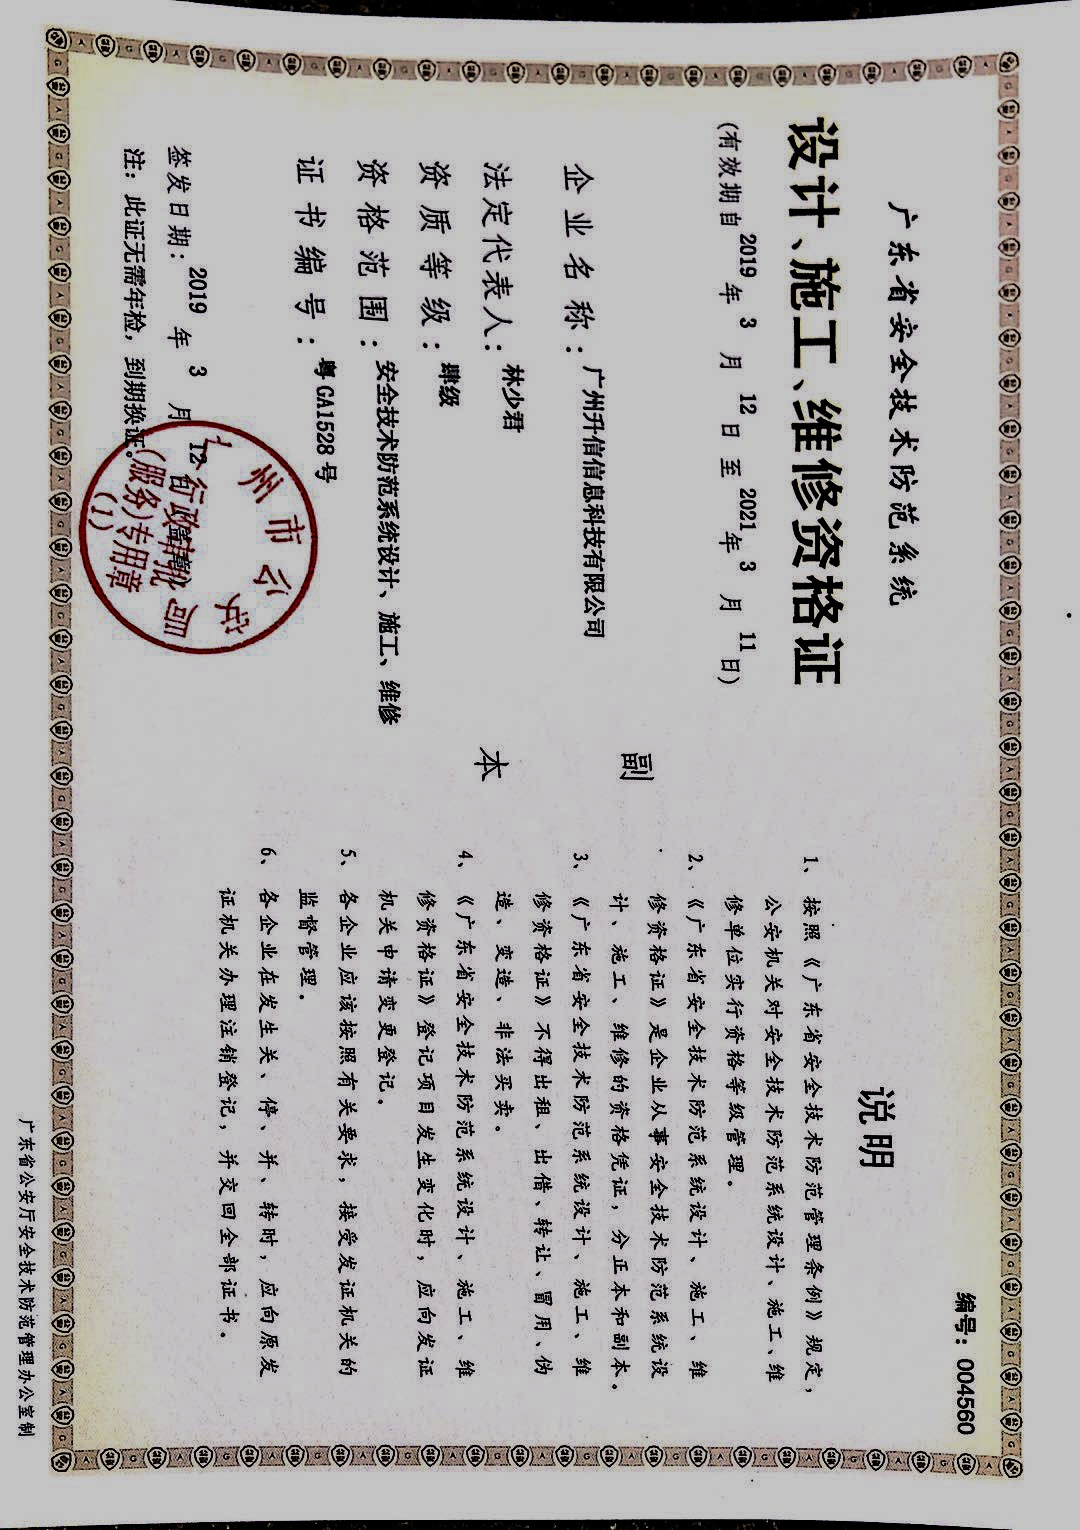 编号：004560
广东省安全技术防范系统
设计、施工、维修资格证
(有效期自 2019 年 3 月 12 日 至 2021 年 3 月 11 日)
企业名称：广州升信信息科技有限公司
法定代表人：林少君
资质等级：肆级
资格范围：安全技术防范系统设计、施工、维修
证书编号：粤 GA1528 号
签发日期：2019 年 3 月 12
注：此证无需年检，到期换证。
广州市公安局
行政审批
(服务)专用章
(1)
副
本
说明
1、按照《广东省安全技术防范管理条例》规定，
公安机关对安全技术防范系统设计、施工、维
修单位实行资格等级管理。
2、《广东省安全技术防范系统设计、施工、维
修资格证》是企业从事安全技术防范系统设
计、施工、维修的资格凭证，分正本和副本。
3、《广东省安全技术防范系统设计、施工、维
修资格证》不得出租、出借、转让、冒用、伪
造、变造、非法买卖。
4、《广东省安全技术防范系统设计、施工、维
修资格证》登记项目发生变化时，应向发证
机关申请变更登记。
5、各企业应该按照有关要求，接受发证机关的
监督管理。
6、各企业在发生关、停、并、转时，应向原发
证机关办理注销登记，并交回全部证书。
广东省公安厅安全技术防范管理办公室制